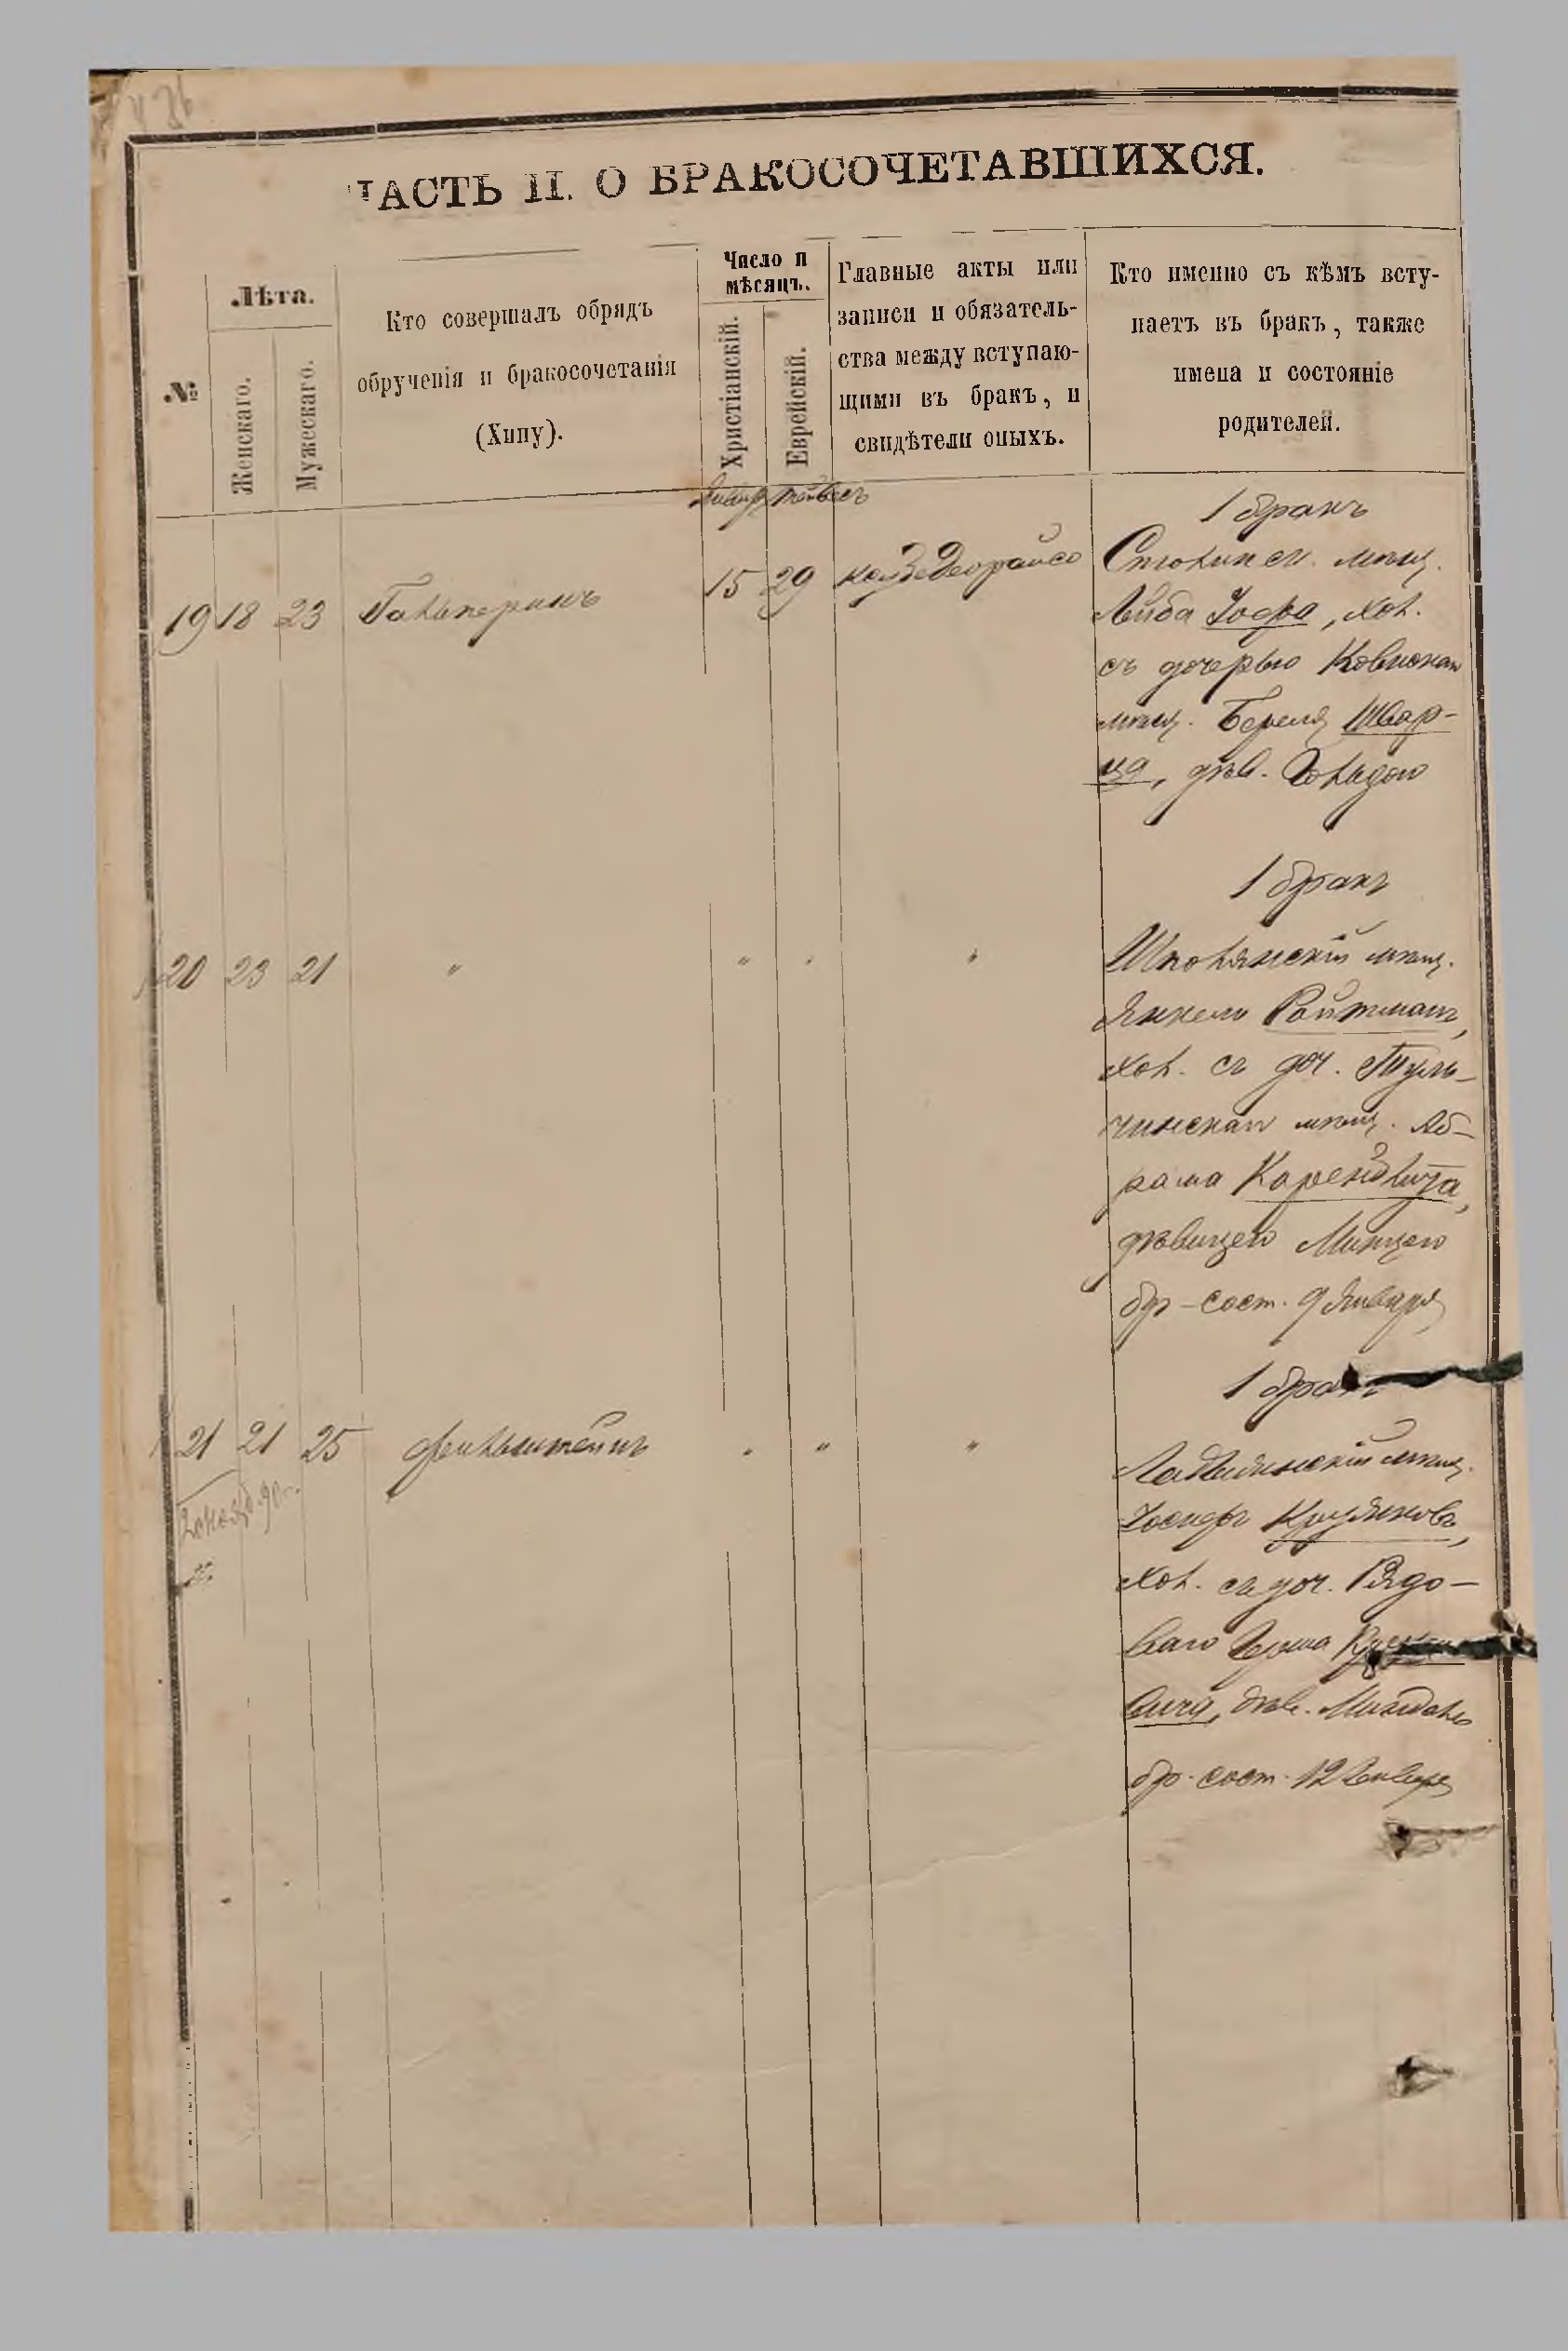 ЧАСТЬ II. О БРАКОСОЧЕТАВШИХСЯ.
№
Лѣта.
Женскаго.
Мужескаго.
Кто совершалъ обрядъ
обрученія и бракосочетанія
(Хипу).
Число и
мѣсяцъ.
Христіанскій.
Еврейскій.
Главные акты или
записи и обязатель-
ства между вступаю-
щими въ бракъ, и
свидѣтели оныхъ.
Кто именно съ кѣмъ всту-
паетъ въ бракъ, также
имена и состояніе
родителей.
Январь Тейвесъ
19 18 23 Гальперинъ 15 29
1 бракъ
мѣщ.
Лейба Іофа, хол.
съ дочерью Ковенскаго
мѣщ. Береля Швар-
ца, дѣв. Гольдою
20 23 21 " " " "
1 бракъ
Шполянскій мѣщ.
Янкель Ройтманъ,
хол. съ доч. Туль-
чинскаго мѣщ. Аб-
рама
дѣвицею Минцею
бр-сост. 9 Января
21 21 25 Финкельштейнъ " " "
1 бракъ
мѣщ.
Іосифъ
хол. съ доч. Рядо-
ваго Герша
вича, дѣв.
бр. сост. 12 Января